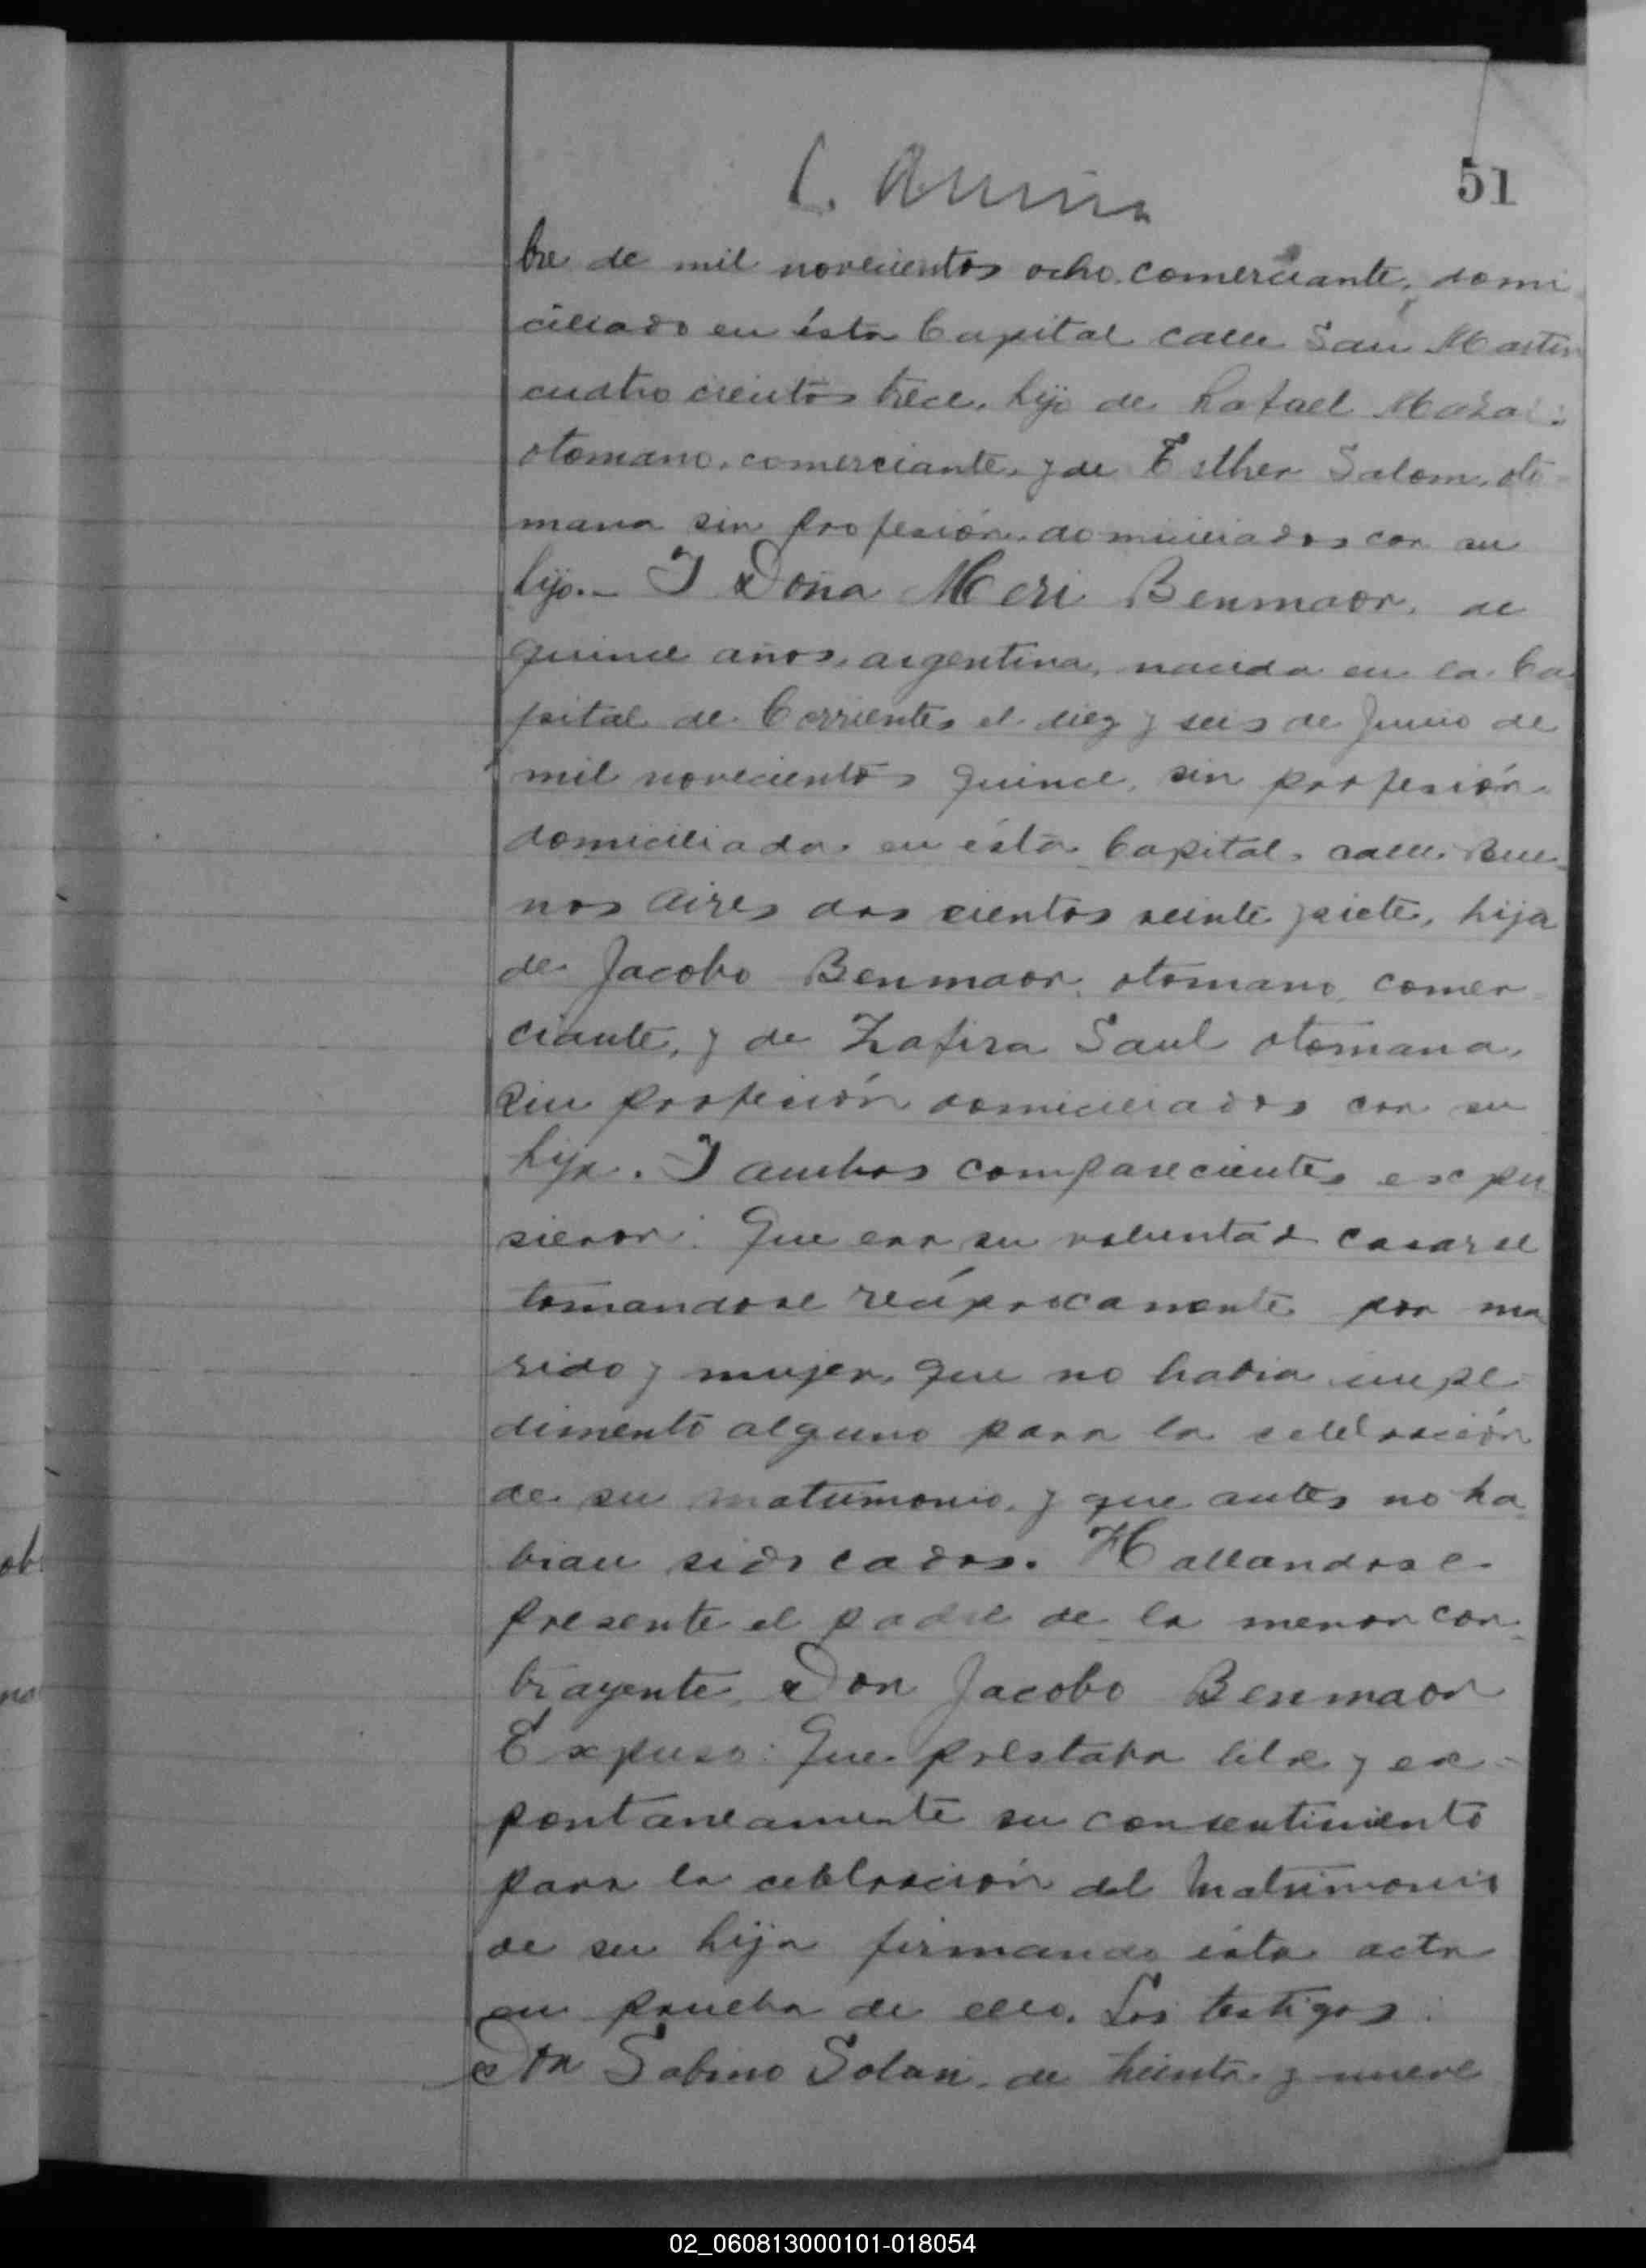 51
bre de mil novecientos ocho, comerciante, domi
ciliado en ésta Capital calle San Martin
cuatro cientos trece, hijo de Rafael
otomano, comerciante, y de Esther Salom, oto
mana sin profesión, domiciliados con su
hijo.- I Doña Meri Benmaor, de
quince años, argentina, nacida en la Ca
pital de Corrientes el diez y seis de Junio de
mil novecientos quince, sin profesión
domiciliada en ésta Capital, calle Bue
nos Aires dos cientos veinte y siete, hija
de Jacobo Benmaor, otomano, comer
ciante, y de Zafira Saul otomana,
sin profesión domiciliados con su
hija. I ambos comparecientes expu
sieron: Que era su voluntad casarse
tomandose recíprocamente por ma
rido y mujer, que no habia impe
dimento alguno para la celebración
de su matrimonio, y que antes no ha
bian sido cados. Hallandose
presente el padre de la menor con
trayente, Don Jacobo Benmaor
Expuso: Que prestaba libre y es
pontaneamente su consentimiento
para la celebración del Matrimonio
de su hija firmando ésta acta
en prueba de ello. Los testigos:
Don Sabino Solari, de treinta y nueve
02_060813000101-018054